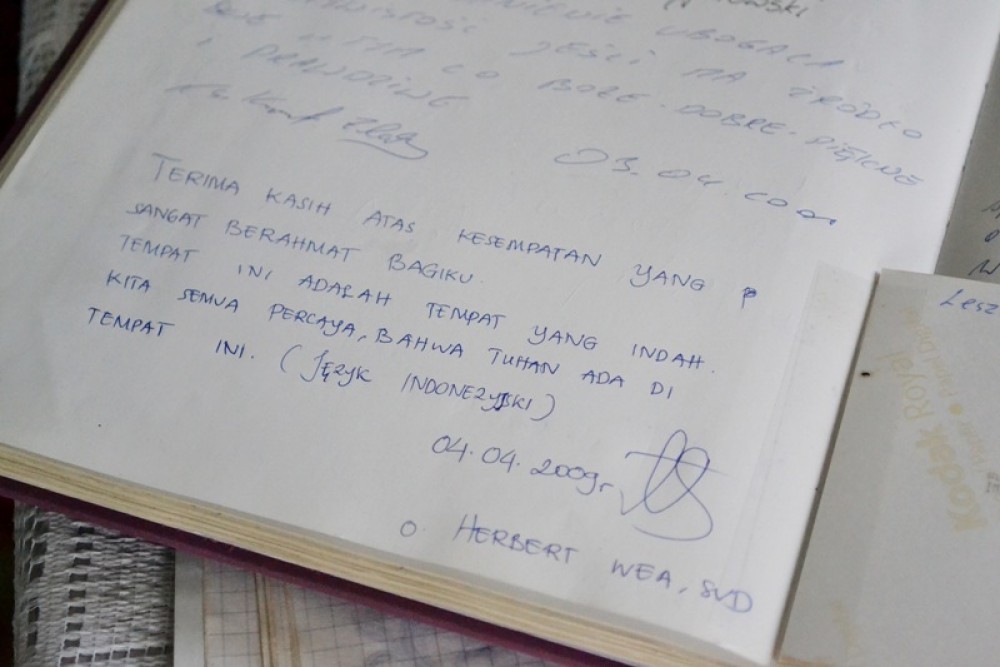 UBOGACA
JEŚLI MA ŹRÓDŁO
W TYM CO BOŻE-DOBRE-PIĘKNE
I PRAWDZIWE
TERIMA KASIH ATAS KESEMPATAN YANG
SANGAT BERAHMAT BAGIKU.
TEMPAT INI ADALAH TEMPAT YANG INDAH.
KITA SEMUA PERCAYA, BAHWA TUHAN ADA DI
TEMPAT INI. (JĘZYK INDONEZYJSKI)
04.04.2009r
O. HERBERT WEA, SVD
Lesz
Kodak Royal